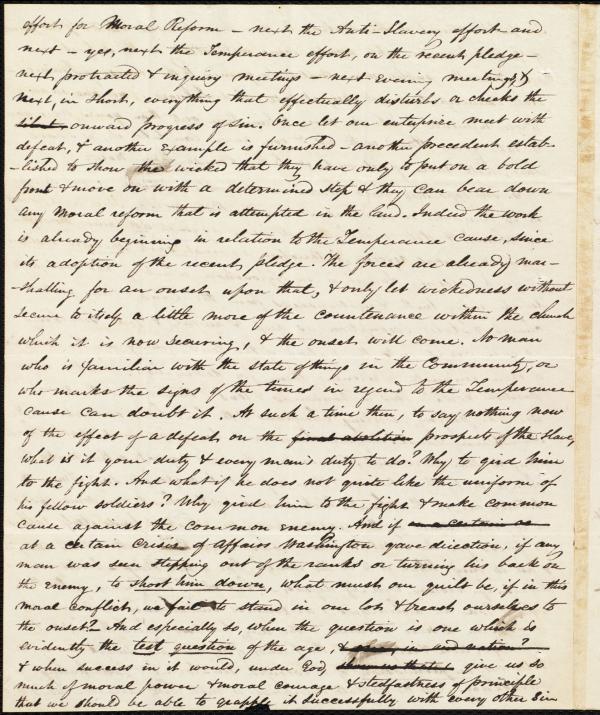 effort for Moral Reform – next the Anti-Slavery effort and
next – yes, next the Temperance effort, on the recent pledge –
next protracted & inquiry meetings – next Evening meetings, &
next, in short, everything that effectually disturbs or checks the
onward progress of sin. Once let our enterprise meet with
defeat, & another example is furnished – another precedent estab-
-lished to show the wicked that they have only to put on a bold
front & move on with a determined step & they can bear down
any moral reform that is attempted in the land. Indeed the work
is already beginning in relation to the Temperance cause, since
its adoption of the recent pledge. The forces are already mar-
-shalling for an onset upon that, & only let wickedness without
secure to itself a little more of the countenance within the church
which it is now securing, & the onset will come. No man
who is familiar with the state of things in the Community, or
who marks the signs of the times in regard to the Temperance
cause can doubt it. At such a time then, to say nothing now
of the effect of a defeat, on the final abolition prospects of the slave,
what is it your duty & every man's duty to do? Why to gird him
to the fight. And what if he does not quite like the uniform of
his fellow soldiers? Why gird him to the fight & make common
cause against the common enemy. And if in a certain as
at a certain crisis of affairs Washington gave direction, if any
man was seen stepping out of the ranks or turning his back on
the enemy, to shoot him down, what must our guilt be, if in this
moral conflict, we fail to stand in our lot & breast ourselves to
the onset? And especially so, when the question is one which is
evidently the test question of the age,
& when success in it would, under God, give us so
much of moral power & moral courage & stedfastness of principle
that we should be able to grapple it successfully with every other sin